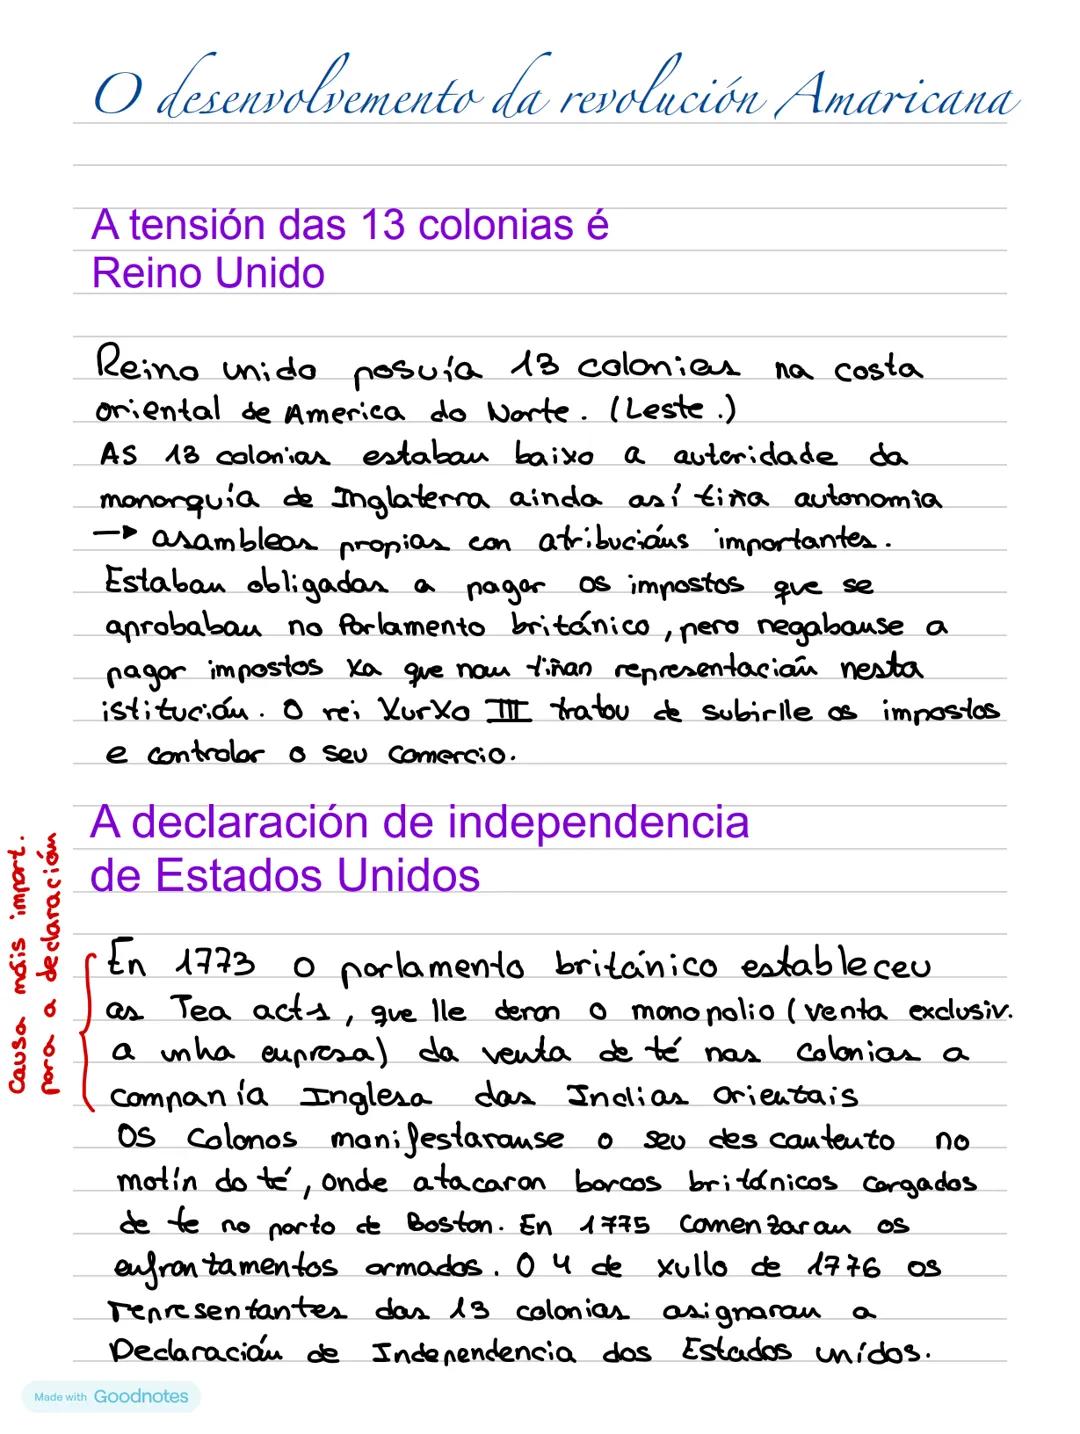 O desenvolvemento da revolución Amaricana
A tensión das 13 colonias é
Reino Unido
Reino unido posuía 13 colonias na costa
oriental de America do Norte. (Leste.)
AS 13 colonias estaban baixo a autoridade da
monarquía de Inglaterra ainda así tiña autonomia
→ asambleas propias con atribucións importantes.
Estaban obligadas a pagar os impostos que se
aprobaban no Parlamento británico, pero negabanse a
pagar impostos xa que non tiñan representación nesta
istitución. O rei XurXo III tratou de subirlle os impostos
e controlar o seu comercio.
A declaración de independencia
de Estados Unidos
Causa máis import.
para a declaración
En 1773 o parlamento británico estableceu
as Tea acts, que lle deron o monopolio (venta exclusiv.
a unha empresa) da venta de té nas colonias a
companía Inglesa das Indias Orientais
OS Colonos manifestaronse o seu descontento no
motín do té, onde atacaron barcos británicos cargados
de te no porto de Boston. En 1775 comenzaron os
enfrontamentos armados. O 4 de xullo de 1776 os
representantes das 13 colonias asignaron a
Declaración de Independencia dos Estados unídos.
Made with Goodnotes